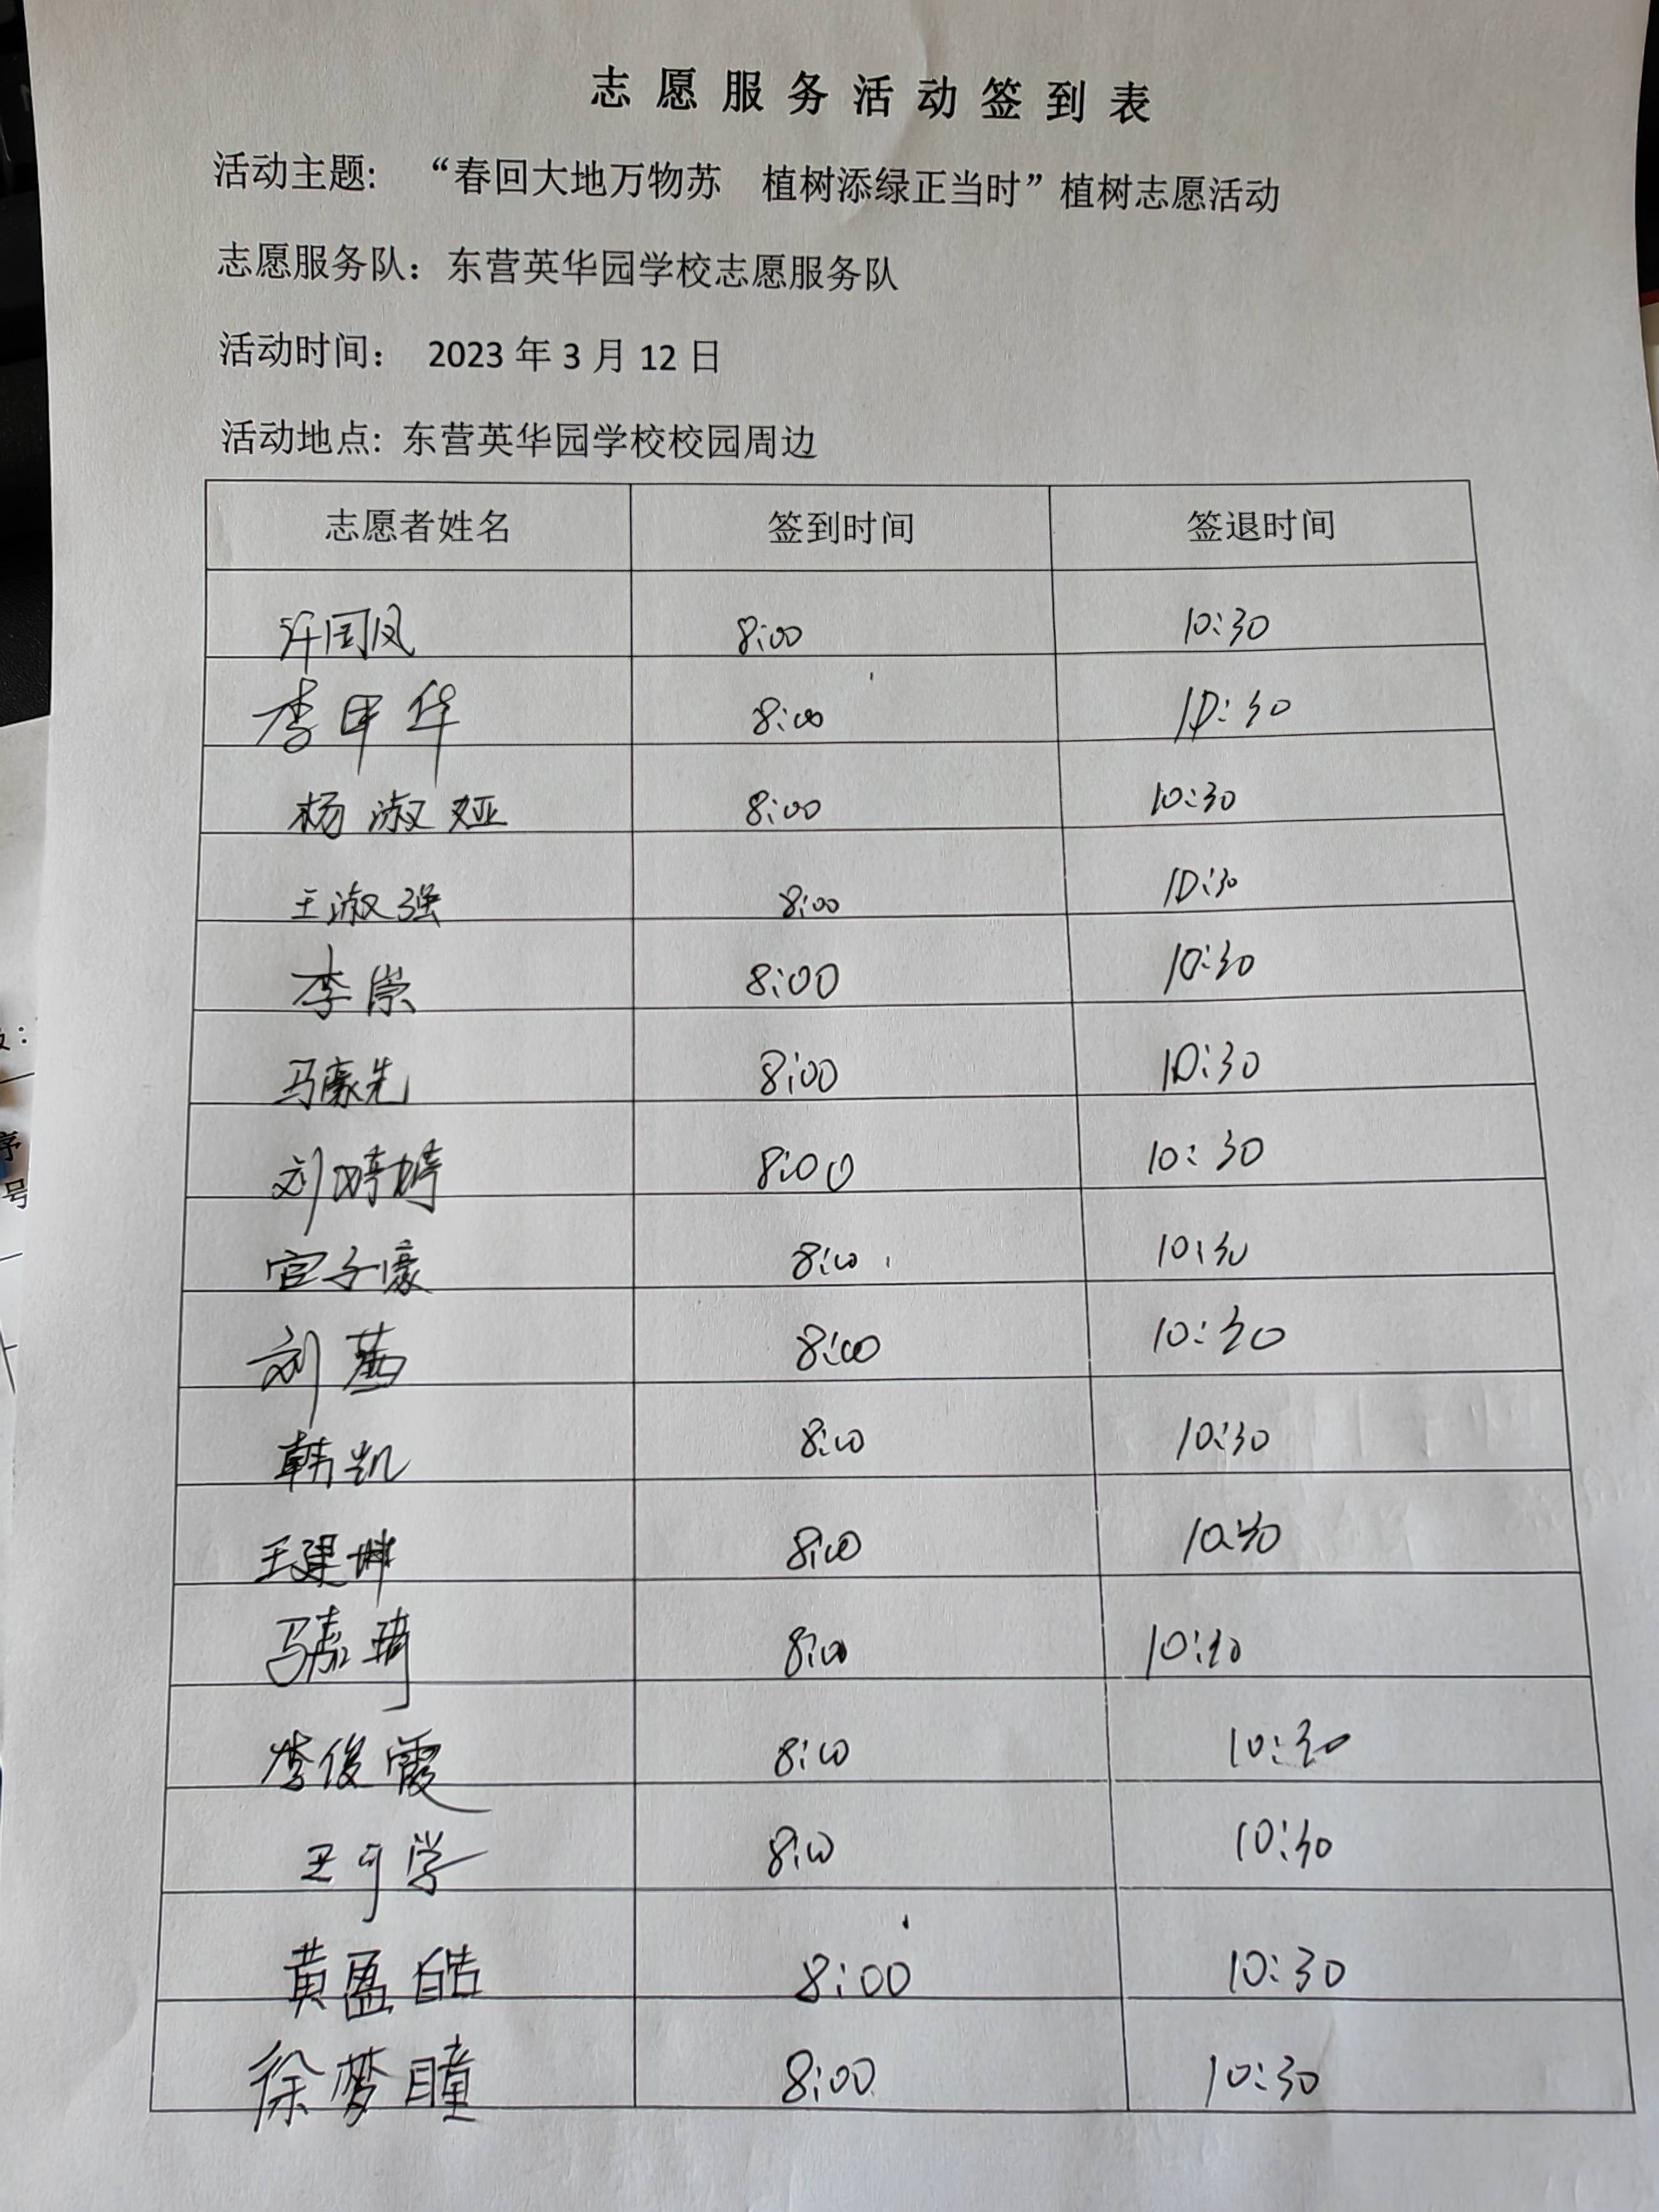 志愿服务活动签到表
活动主题: “春回大地万物苏 植树添绿正当时”植树志愿活动
志愿服务队：东营英华园学校志愿服务队
活动时间： 2023年3月12日
活动地点: 东营英华园学校校园周边
志愿者姓名 签到时间 签退时间
许国凤 8:00 10:30
李甲华 8:00 10:30
杨淑娅 8:00 10:30
王淑强 8:00 10:30
李崇 8:00 10:30
马豪先 8:00 10:30
刘婷婷 8:00 10:30
官子豪 8:00 10:30
刘茜 8:00 10:30
韩凯 8:00 10:30
王建坤 8:00 10:30
马嘉琦 8:00 10:30
李俊霞 8:00 10:30
王可学 8:00 10:30
黄盈皓 8:00 10:30
徐梦瞳 8:00 10:30
序
号